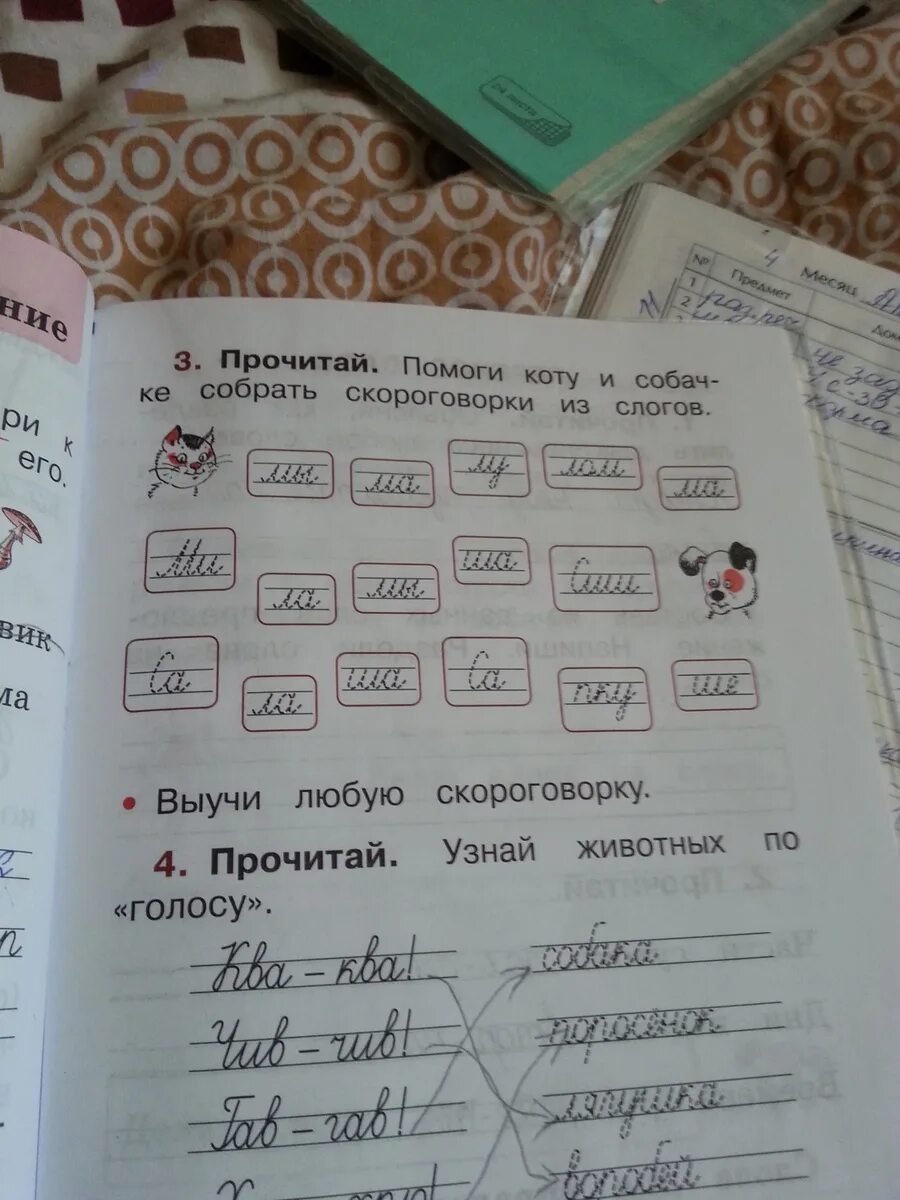 24 листа
4 Месяц
№ Предмет
1
2
ние
ри к
его.
вик
ма
3. Прочитай. Помоги коту и собач-
ке собрать скороговорки из слогов.
мы ма му лом ма
Ми ла мы ша Сши
Са ла ша Са пку ше
• Выучи любую скороговорку.
4. Прочитай. Узнай животных по
«голосу».
Ква – ква! собака
Чив – чив! поросёнок
Гав – гав! лягушка
воробей